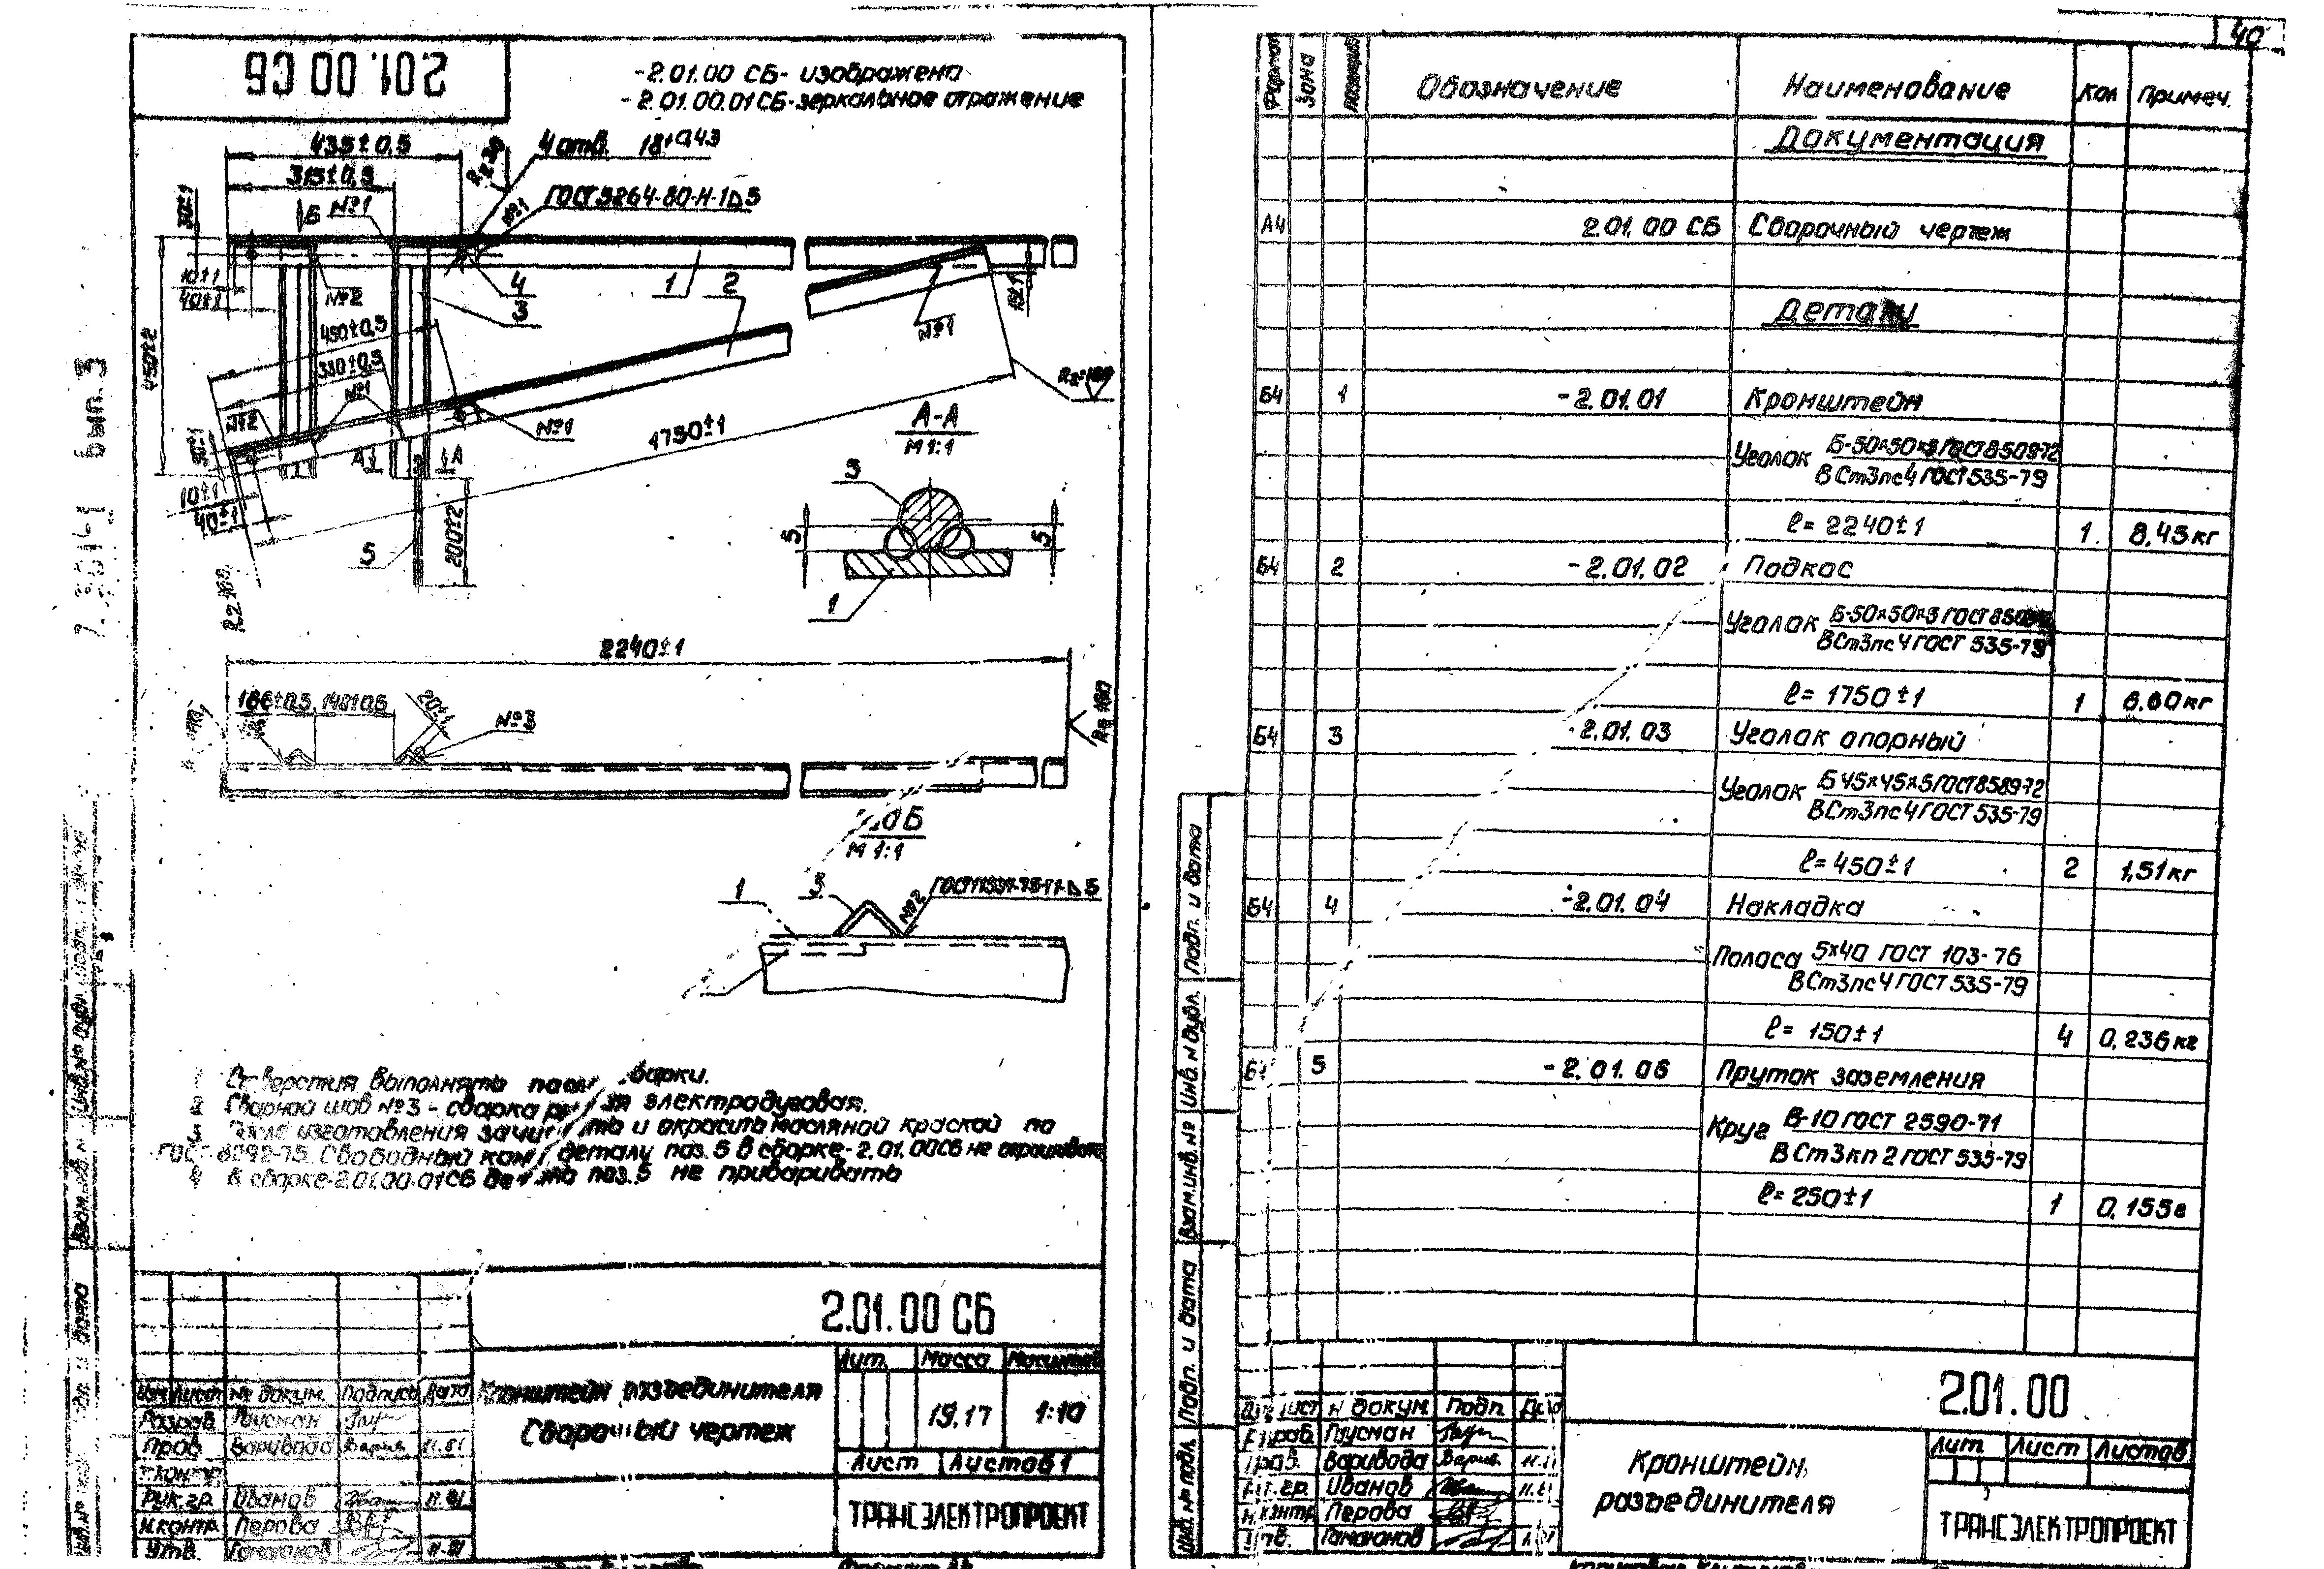 2.01.00 СБ
-2.01.00 СБ- изображено
-2.01.00.01 СБ-зеркальное отражение
435±0,5
4 отв. 18+0,43
315±0,5
ГОСТ 5264-80-Н-1⊿5
Б
№1
№1
30±1
10±1
40±1
№2
4
3
1
2
450±2
450±0,5
330±0,5
№1
№1
№2
№1
1750±1
А-А
М 1:1
3
А
А
10±1
40±1
5
200±2
5
5
1
2240±1
186±0,5
148±0,5
20±1
№3
Б
М 1:1
1
3
№2
Отверстия выполнять после сварки.
2 Сварной шов №3 - сварка ручная электродуговая.
3 После изготовления зачистить и окрасить масляной краской по
ГОСТ 8292-75. Свободный конец детали поз. 5 в сборке -2.01.00СБ не окрашивать
4 В сборке-2.01.00-01СБ деталь поз. 5 не приваривать
7.501-1 Вып. 3
2.01.00 СБ
Кронштейн разъединителя
Сборочный чертеж
Лит. Масса Масштаб
19,17 1:10
Лист Листов 1
ТРАНСЭЛЕКТРОПРОЕКТ
Изм Лист № докум. Подпись Дата
Разраб. Гаусман
Пров. Варивода 11.81
Т.контр.
Рук.гр. Иванов 11.81
Н.контр. Перова
Утв. Гамаюнов 11.81
40
Формат Зона Позиция Обозначение Наименование Кол Примеч.
Документация
А4 2.01.00 СБ Сборочный чертеж
Детали
Б4 1 -2.01.01 Кронштейн
Уголок Б-50×50×5 ГОСТ 8509-72
ВСт3пс4 ГОСТ 535-79
ℓ= 2240±1 1. 8,45кг
Б4 2 -2.01.02 Подкос
Уголок Б-50×50×5 ГОСТ 8509
ВСт3пс4 ГОСТ 535-79
ℓ= 1750±1 1 6,60кг
Б4 3 -2.01.03 Уголок опорный
Уголок Б 45×45×5 ГОСТ 8589-72
ВСт3пс4 ГОСТ 535-79
ℓ= 450±1 2 1,51кг
Б4 4 -2.01.04 Накладка
Полоса 5×40 ГОСТ 103-76
ВСт3пс4 ГОСТ 535-79
ℓ= 150±1 4 0,236кг
Б4 5 -2.01.06 Пруток заземления
Круг В-10 ГОСТ 2590-71
ВСт3кп2 ГОСТ 535-79
ℓ= 250±1 1 0,155г
Подп. и дата
Инв. № дубл.
Взам.инв.№
Подп. и дата
Инв. № подл.
2.01.00
Кронштейн
разъединителя
Лит Лист Листов
ТРАНСЭЛЕКТРОПРОЕКТ
Лист № докум Подп. Дата
Разраб. Гаусман
Пров. Варивода
Рук.гр. Иванов
Н.контр Перова
Утв. Гамаюнов